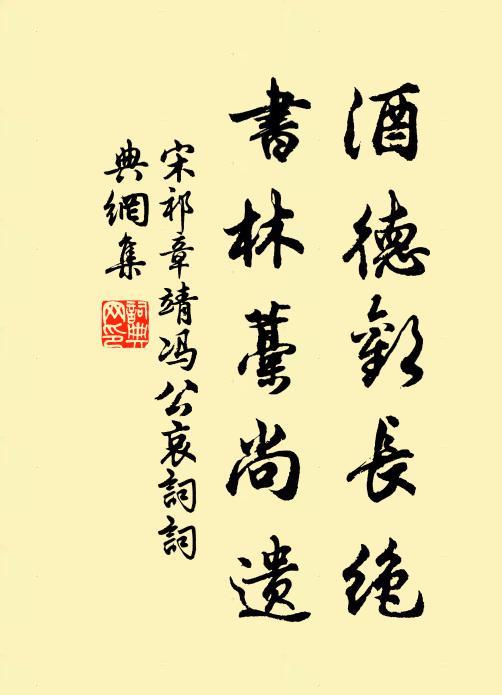 酒德歡長絶
書林藁尚遺
宋祁章靖冯公哀詞詞
典網集
詞典网印